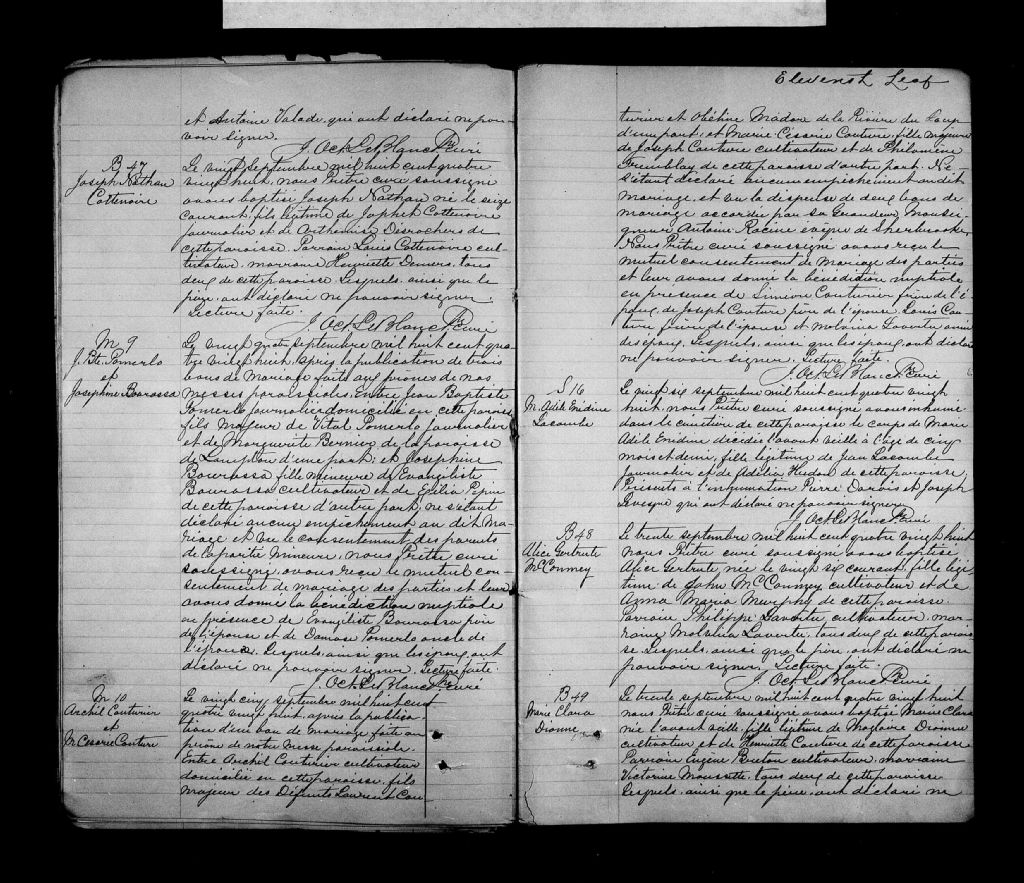 et Antoine Valade qui ont déclaré ne pou-
voir signer.
J. Oct. LeBlanc Ptre Curé
B 47
Joseph Nathan
Cottenoire
Le vingt septembre mil huit cent quatre
vingt huit, nous Prêtre curé soussigné
avons baptisé Joseph Nathan né le seize
courant, fils légitime de Japhet Cottenoire
journalier et de Arthémise Desrochers de
cette paroisse. Parrain Louis Cottenoire cul-
tivateur, marraine Henriette Demers, tous
deux de cette paroisse lesquels ainsi que le
père ont déclaré ne pouvoir signer.
Lecture faite.
J. Oct. LeBlanc Ptre Curé
M 9
J. Bte. Pomerlo
et
Josephine Bourassa
Le vingt quatre septembre mil huit cent qua-
tre vingt huit, après la publication de trois
bans de Mariage faits aux prônes de nos
messes paroissiales, Entre Jean Baptiste
Pomerlo journalier domicilié en cette paroisse
fils Majeur de Vital Pomerlo journalier
et de Marguerite Bernier de la paroisse
de Lampton d'une part; et Josephine
Bourassa fille mineure de Evangéliste
Bourassa cultivateur et de Exilia Pepin
de cette paroisse d'autre part, ne s'étant
déclaré aucun empêchement au dit Ma-
riage et vu le consentement des parents
de la partie mineure, nous Prêtre curé
soussigné, avons reçu le mutuel con-
sentement de mariage des parties et leur
avons donné la bénédiction nuptiale
en présence de Evangéliste Bourassa père
de l'épouse et de Damase Pomerlo oncle de
l'époux. Lesquels ainsi que les époux ont
déclaré ne pouvoir signer. Lecture faite.
J. Oct. LeBlanc Ptre Curé
M 10
Archil Couturier
et
M. Cesarie Couture
Le vingt cinq septembre mil huit cent
quatre vingt huit, après la publica-
tion d'un ban de Mariage faite au
prône de notre Messe paroissiale.
Entre Archil Couturier cultivateur
domicilié en cette paroisse, fils
majeur des Défunts Laurent Cou-
Eleventh Leaf
turier et Obéline Madore de la Rivière du Loup
d'une part, et Marie Césarie Couture, fille majeure
de Joseph Couture cultivateur et de Philomène
Tremblay de cette paroisse d'autre part. Ne
s'étant déclaré aucun empêchement au dit
mariage, et vu la dispense de deux bans de
mariage accordée par sa Grandeur Monsei-
gneur Antoine Racine évêque de Sherbrooke,
Nous Prêtre curé soussigné avons reçu le
mutuel consentement de mariage des parties
et leur avons donné la bénédiction nuptiale
en présence de Couturier frère de l'é-
poux, de Joseph Couture père de l'épouse, Louis Cou-
ture frère de l'épouse et Malvina Lavertu amie
des époux. Lesquels, ainsi que les époux, ont déclaré
ne pouvoir signer. Lecture faite.
J. Oct. LeBlanc Ptre Curé
S 16
M. Adèle Enédine
Lacombe
Le septembre mil huit cent quatre vingt
huit, nous Prêtre curé soussigné avons inhumé
dans le cimetière de cette paroisse le corps de Marie
Adèle Enédine décédée l'avant veille à l'âge de cinq
mois et demi, fille légitime de Jean Lacombe
journalier et de Adélia Hudon de cette paroisse.
Présents à l'inhumation Pierre et Joseph
Levesque qui ont déclaré ne pouvoir signer.
J. Oct. LeBlanc Ptre Curé
B 48
Alice Gertrute
McConmey
Le trente septembre mil huit cent quatre vingt huit
nous Prêtre curé soussigné avons baptisé
Alice Gertrute, née le vingt six courant, fille légi-
time de John McConmey cultivateur et de
Anna Maria Murphy de cette paroisse.
Parrain Philippe Lavertu cultivateur, mar-
raine Malvina Lavertu, tous deux de cette parois-
se lesquels ainsi que le père, ont déclaré ne
pouvoir signer. Lecture faite.
J. Oct. LeBlanc Ptre Curé
B 49
Marie Clara
Dionne
Le trente septembre mil huit cent quatre vingt huit
nous Prêtre curé soussigné avons baptisé Marie Clara
née l'avant veille, fille légitime de Magloire Dionne
cultivateur et de Henriette Couture de cette paroisse
Parrain Eugène Breton cultivateur, marraine
Victorine Moussette, tous deux de cette paroisse
lesquels, ainsi que le père, ont déclaré ne